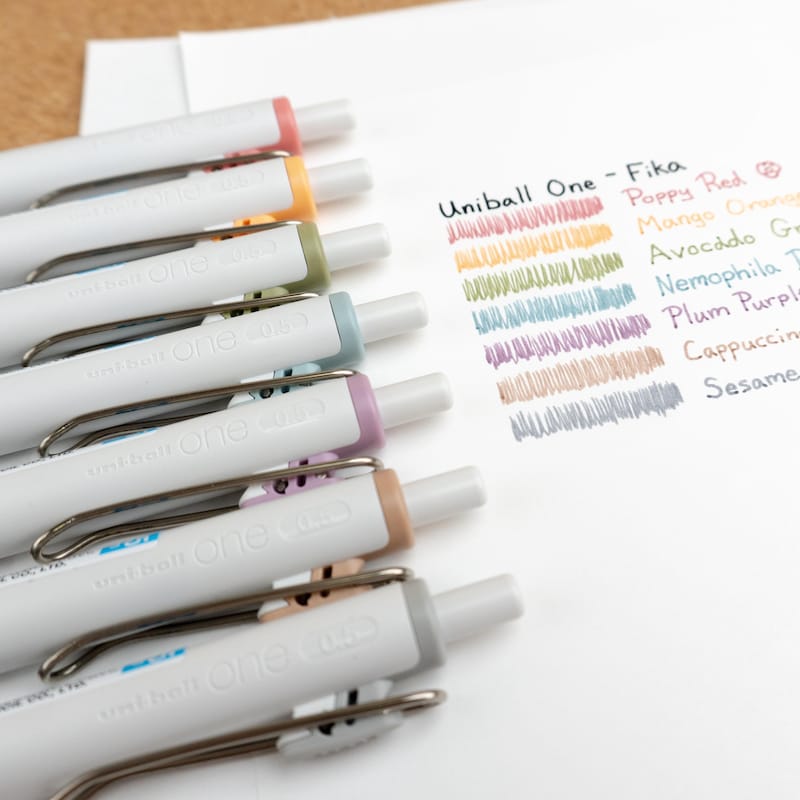 Uniball One - Fika
Poppy Red
Mango Orange
Avocado Gr
Nemophila
Plum Purple
Cappuccin
Sesame
one 0.5
uni-ball one 0.5
uni-ball one 0.5
uni-ball one 0.5
uni-ball one 0.5
uni-ball one 0.5